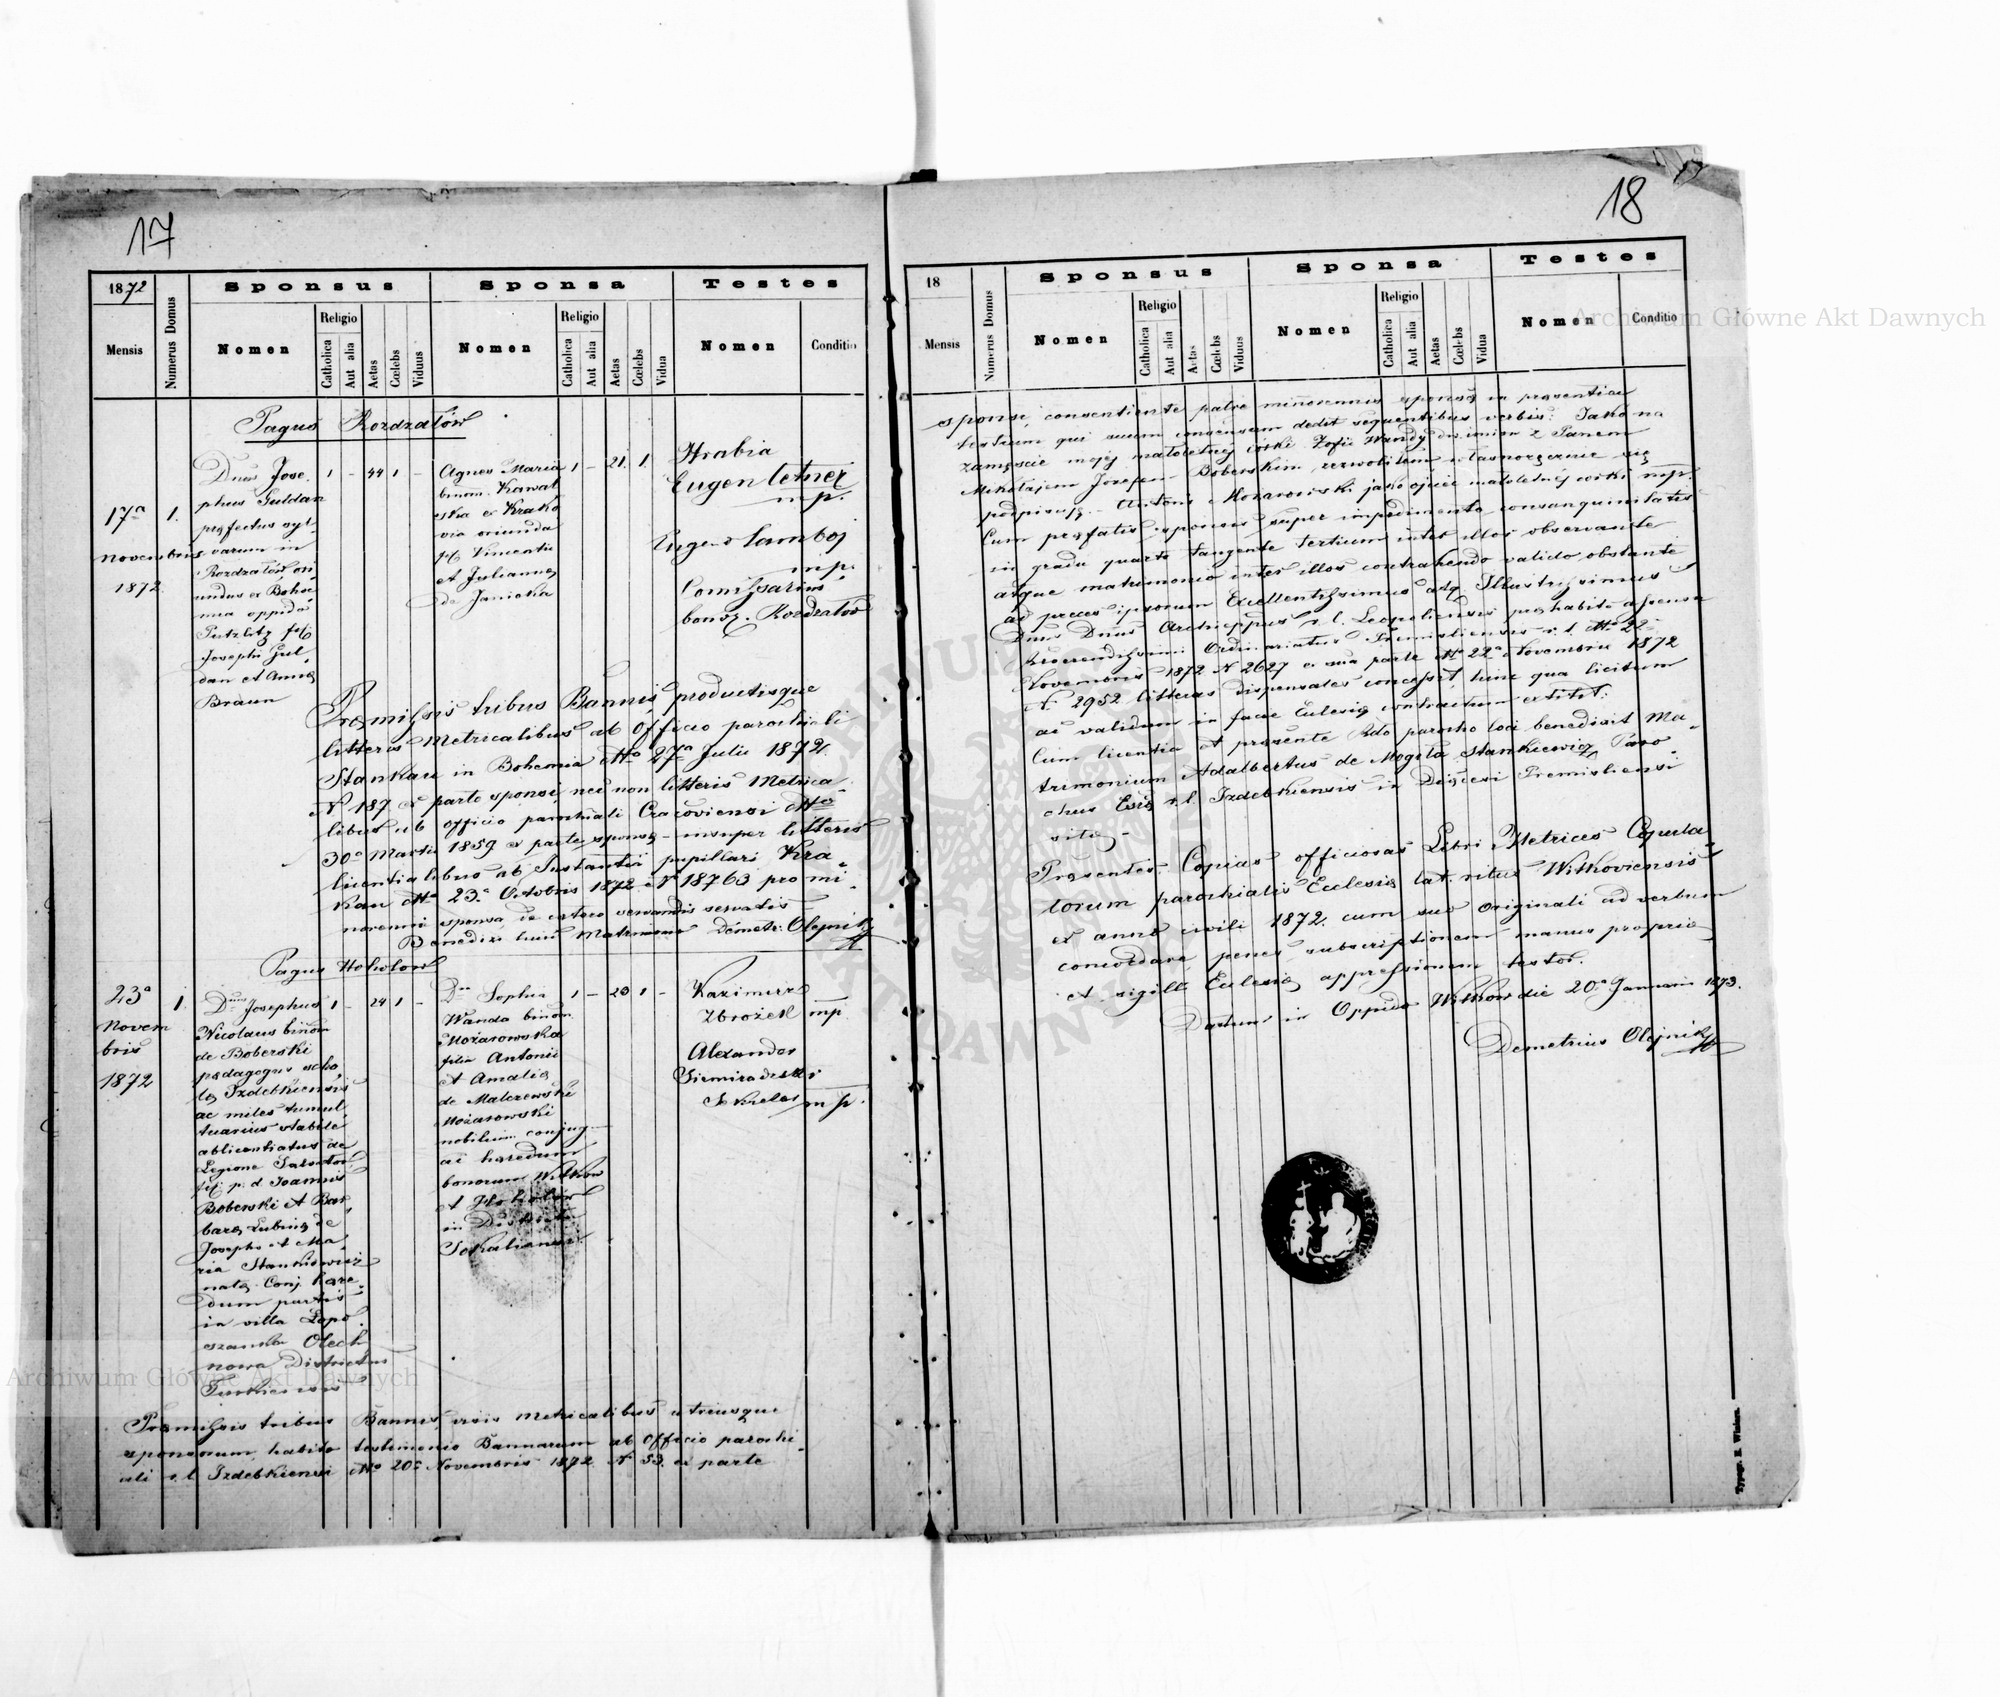 17
1872
Mensis
Numerus Domus
Sponsus
Nomen
Religio
Catholica
Aut alia
Aetas
Cœlebs
Viduus
Sponsa
Nomen
Religio
Catholica
Aut alia
Aetas
Cœlebs
Vidua
Testes
Nomen
Conditio
Pagus Rozdzałów
17a
Novembris
1872
1.
Dnus Jose
phus Guldan
præfectus syl
varum in
Rozdzałów ori
undus ex Bohe
mia oppido
Putzlitz fil:
Josephi Gul
dan et Annæ
Braun
1 – 44 1 –
Agnes Maria
binom. Kowal
ska ex Krako
via oriunda
fil. Vincentii
et Juliannæ
de Janicka
1 – 21. 1.
Hrabia
Eugen
mp.
mp.
Comissarius
bonor. Rozdzałów
Præmissis tribus Bannis productisque
litteris Metricalibus ab Officio parochiali
Stankau in Bohemia dtto 27a Julii 1872
N 187 ex parte sponsi, nec non litteris Metrica
libus ab officio parochiali Cracoviensi dtto
30a Martii 1859 ex parte sponsæ – insuper litteris
licentialibus ab Instantia pupillari Kra
kau dtto 23a Octobris 1872 N 18763 pro mi
norenni sponsa de cetero servandis servatis
Benedixi huic Matrimonio Demetr: Olejnik
Pagus Hohołow
23a
Novem
bris
1872
1.
Dnus Josephus
Nicolaus binom
de Boberski
pædagogus scho
læ Izdebkiensis
ac miles tumul
tuarius stabile
ablicentiatus de
Legione Salvator
fil: p. d. Joannis
Boberski et Bar
baræ Lubinæ de
Josepho et Ma
ria Stankiewicz
natæ Conj. hære
dum partis
in villa Łopu
szanka Olech
nowa Districtus
1 – 24 1 –
Dna Sophia
Wanda binom
Mozarowska
filia Antonii
et Amaliæ
de Malczewski
Mozarowski
nobilium conjug
ac hæredum
bonorum Witkow
et Hohołów
in Districtu
Sokaliensi
1 – 20 1 –
Kazimierz
Zbrożek mp
Alexander
Siemiradzki
mp.
Præmissis tribus Bannis, visis metricalibus utriusque
sponsorum, habito testimonio Bannorum ab Officio parochi
ali r. l. Izdebkiensi dtto 20a Novembris 1872 N 53. ex parte
18
18
Mensis
Numerus Domus
Sponsus
Nomen
Religio
Catholica
Aut alia
Aetas
Cœlebs
Viduus
Sponsa
Nomen
Religio
Catholica
Aut alia
Aetas
Cœlebs
Vidua
Testes
Nomen
Conditio
sponsi, consentiente patre minorennis sponsæ in præsentia
testium qui suum consensum dedit sequentibus verbis: Jako na
zamęście mojéj małoletniéj córki Zofii Wandy dw. imion z Panem
Mikołajem Józefem Boberskim zezwoliłem własnoręcznie się
podpisuję – Antoni Mozarowski jako ojciec małoletniéj córki mp.
Cum præfatis sponsis super impedimento consanguinitatis
in gradu quarto tangente tertium inter illos observante
atque matrimonio inter illos contrahendo valido obstante
ad preces ipsorum Excellentissimus atq. Illustrissimus
Dnus Dnus Archieppus r. l. Leopoliensis præhabito assensu
Reverendissimi Ordinariatus Premisliensis r. l. dtto 22a
Novembris 1872 N 2627 ex sua parte dtto 22a Novembris 1872
N 2952 litteras dispensales concessit, hinc qua licitum
ac validum in facie Eclesiæ contractum extitit:
Cum licentia et præsente Rdo parocho loci benedixit Ma
trimonium Adalbertus de Mogiła Stankiewicz Paro
chus Ecclæ r. l. Izdebkiensis in Diœcesi Premisliensi
sitæ –
Præsentes Copias officiosas Libri Metrices Copula
torum parochialis Ecclesiæ lat. ritus Witkoviensis
ex anno civili 1872. cum suo originali ad verbum
concordare penes subscriptionem manus propriæ
et sigilli Eclesiæ appressionem testor.
Datum in Oppido Witkow die 20a Januarii 1873.
Demetrius Olejnik
Typogr. E. Winiarz.
Archiwum Główne Akt Dawnych
Archiwum Główne Akt Dawnych